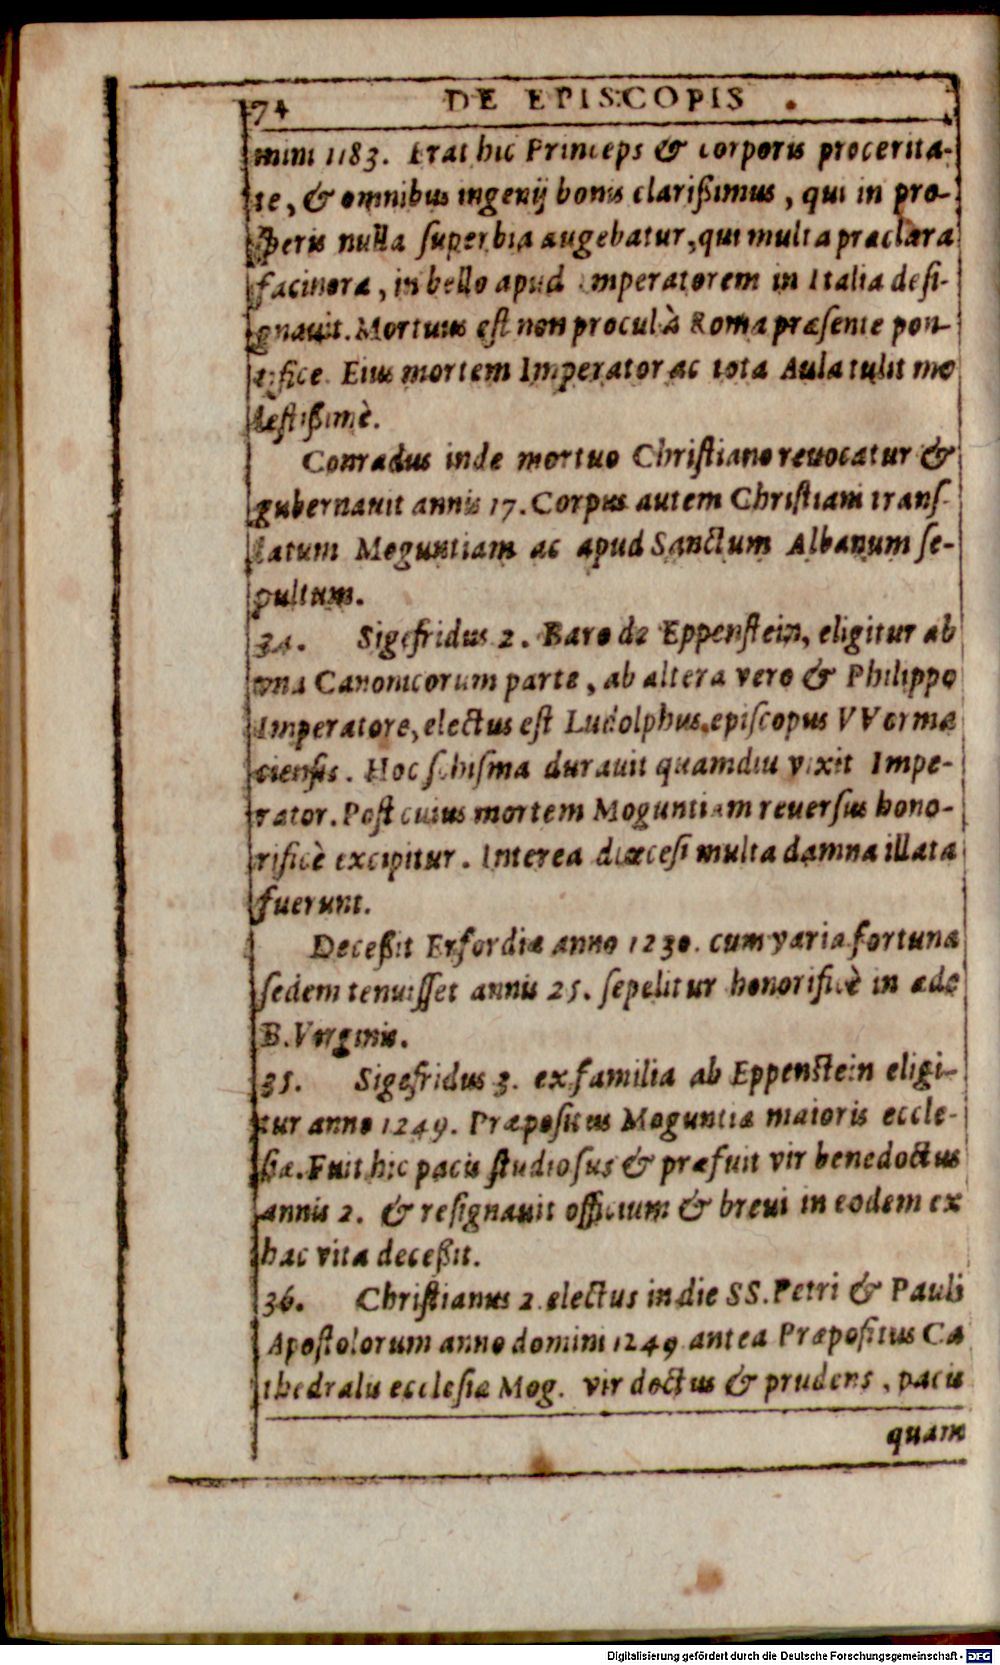 74
DE EPISCOPIS
mini 1183. Erat hic Princeps & corporis procerita-
te, & omnibus ingenij bonis clarißimus, qui in pro-
speris nulla superbia augebatur, qui multa praclara
facinora, in bello apud Imperatorem in Italia desi-
gnauit. Mortuus est non procul à Roma præsente pon-
tifice. Eius mortem Imperator ac tota Aula tulit mo
lestißimè.
Conradus inde mortuo Christiano reuocatur &
gubernauit annis 17. Corpus autem Christiani trans-
latum Moguntiam ac apud Sanctum Albanum se-
pultum.
34. Sigefridus 2. Baro de Eppenstein, eligitur ab
vna Canonicorum parte, ab altera vero & Philippo
Imperatore, electus est Ludolphus episcopus VVorma
ciensis. Hoc schisma durauit quamdiu vixit Impe-
rator. Post cuius mortem Moguntiam reuersus hono-
rificè excipitur. Interea diœcesi multa damna illata
fuerunt.
Deceßit Erfordiæ anno 1230. cum varia fortuna
sedem tenuisset annis 25. sepelitur honorificè in æde
B. Virginis.
35. Sigefridus 3. ex familia ab Eppenstein eligi-
tur anno 1249. Præpositus Moguntiæ maioris eccle-
siæ. Fuit hic pacis studiosus & præfuit vir benedoctus
annis 2. & resignauit officium & breui in eodem ex
hac vita deceßit.
36. Christianus 2. electus in die SS. Petri & Pauli
Apostolorum anno domini 1249 antea Præpositus Ca
thedralis ecclesiæ Mog. vir doctus & prudens, pacis
quam
Digitalisierung gefördert durch die Deutsche Forschungsgemeinschaft - DFG